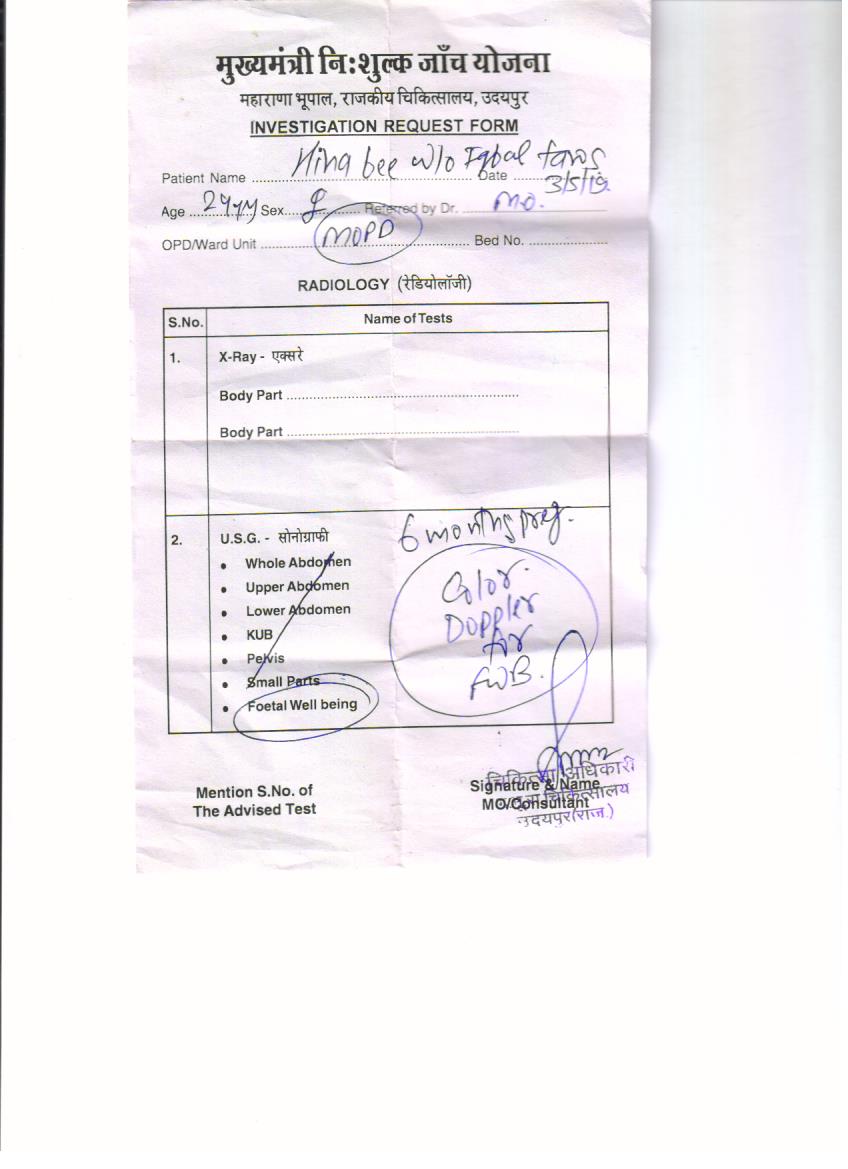 मुख्यमंत्री नि:शुल्क जाँच योजना
महाराणा भूपाल, राजकीय चिकित्सालय, उदयपुर
INVESTIGATION REQUEST FORM
Patient Name ........ Hina bee w/o Iqbal Date ........ 3/5/19
Age ........ Sex ........ Referred by Dr. ........ M.O.
OPD/Ward Unit ........ MOPD ........ Bed No. ........
RADIOLOGY (रेडियोलॉजी)
S.No. Name of Tests
1. X-Ray - एक्सरे
Body Part ........
Body Part ........
2. U.S.G. - सोनोग्राफी 6 months preg.
• Whole Abdomen
• Upper Abdomen
• Lower Abdomen
• KUB
• Pelvis
• Small Parts
• Foetal Well being
Color
Doppler
for
FWB.
Mention S.No. of
The Advised Test
Signature & Name
MO/Consultant
चिकित्सा अधिकारी
चिकित्सालय
उदयपुर(राज.)